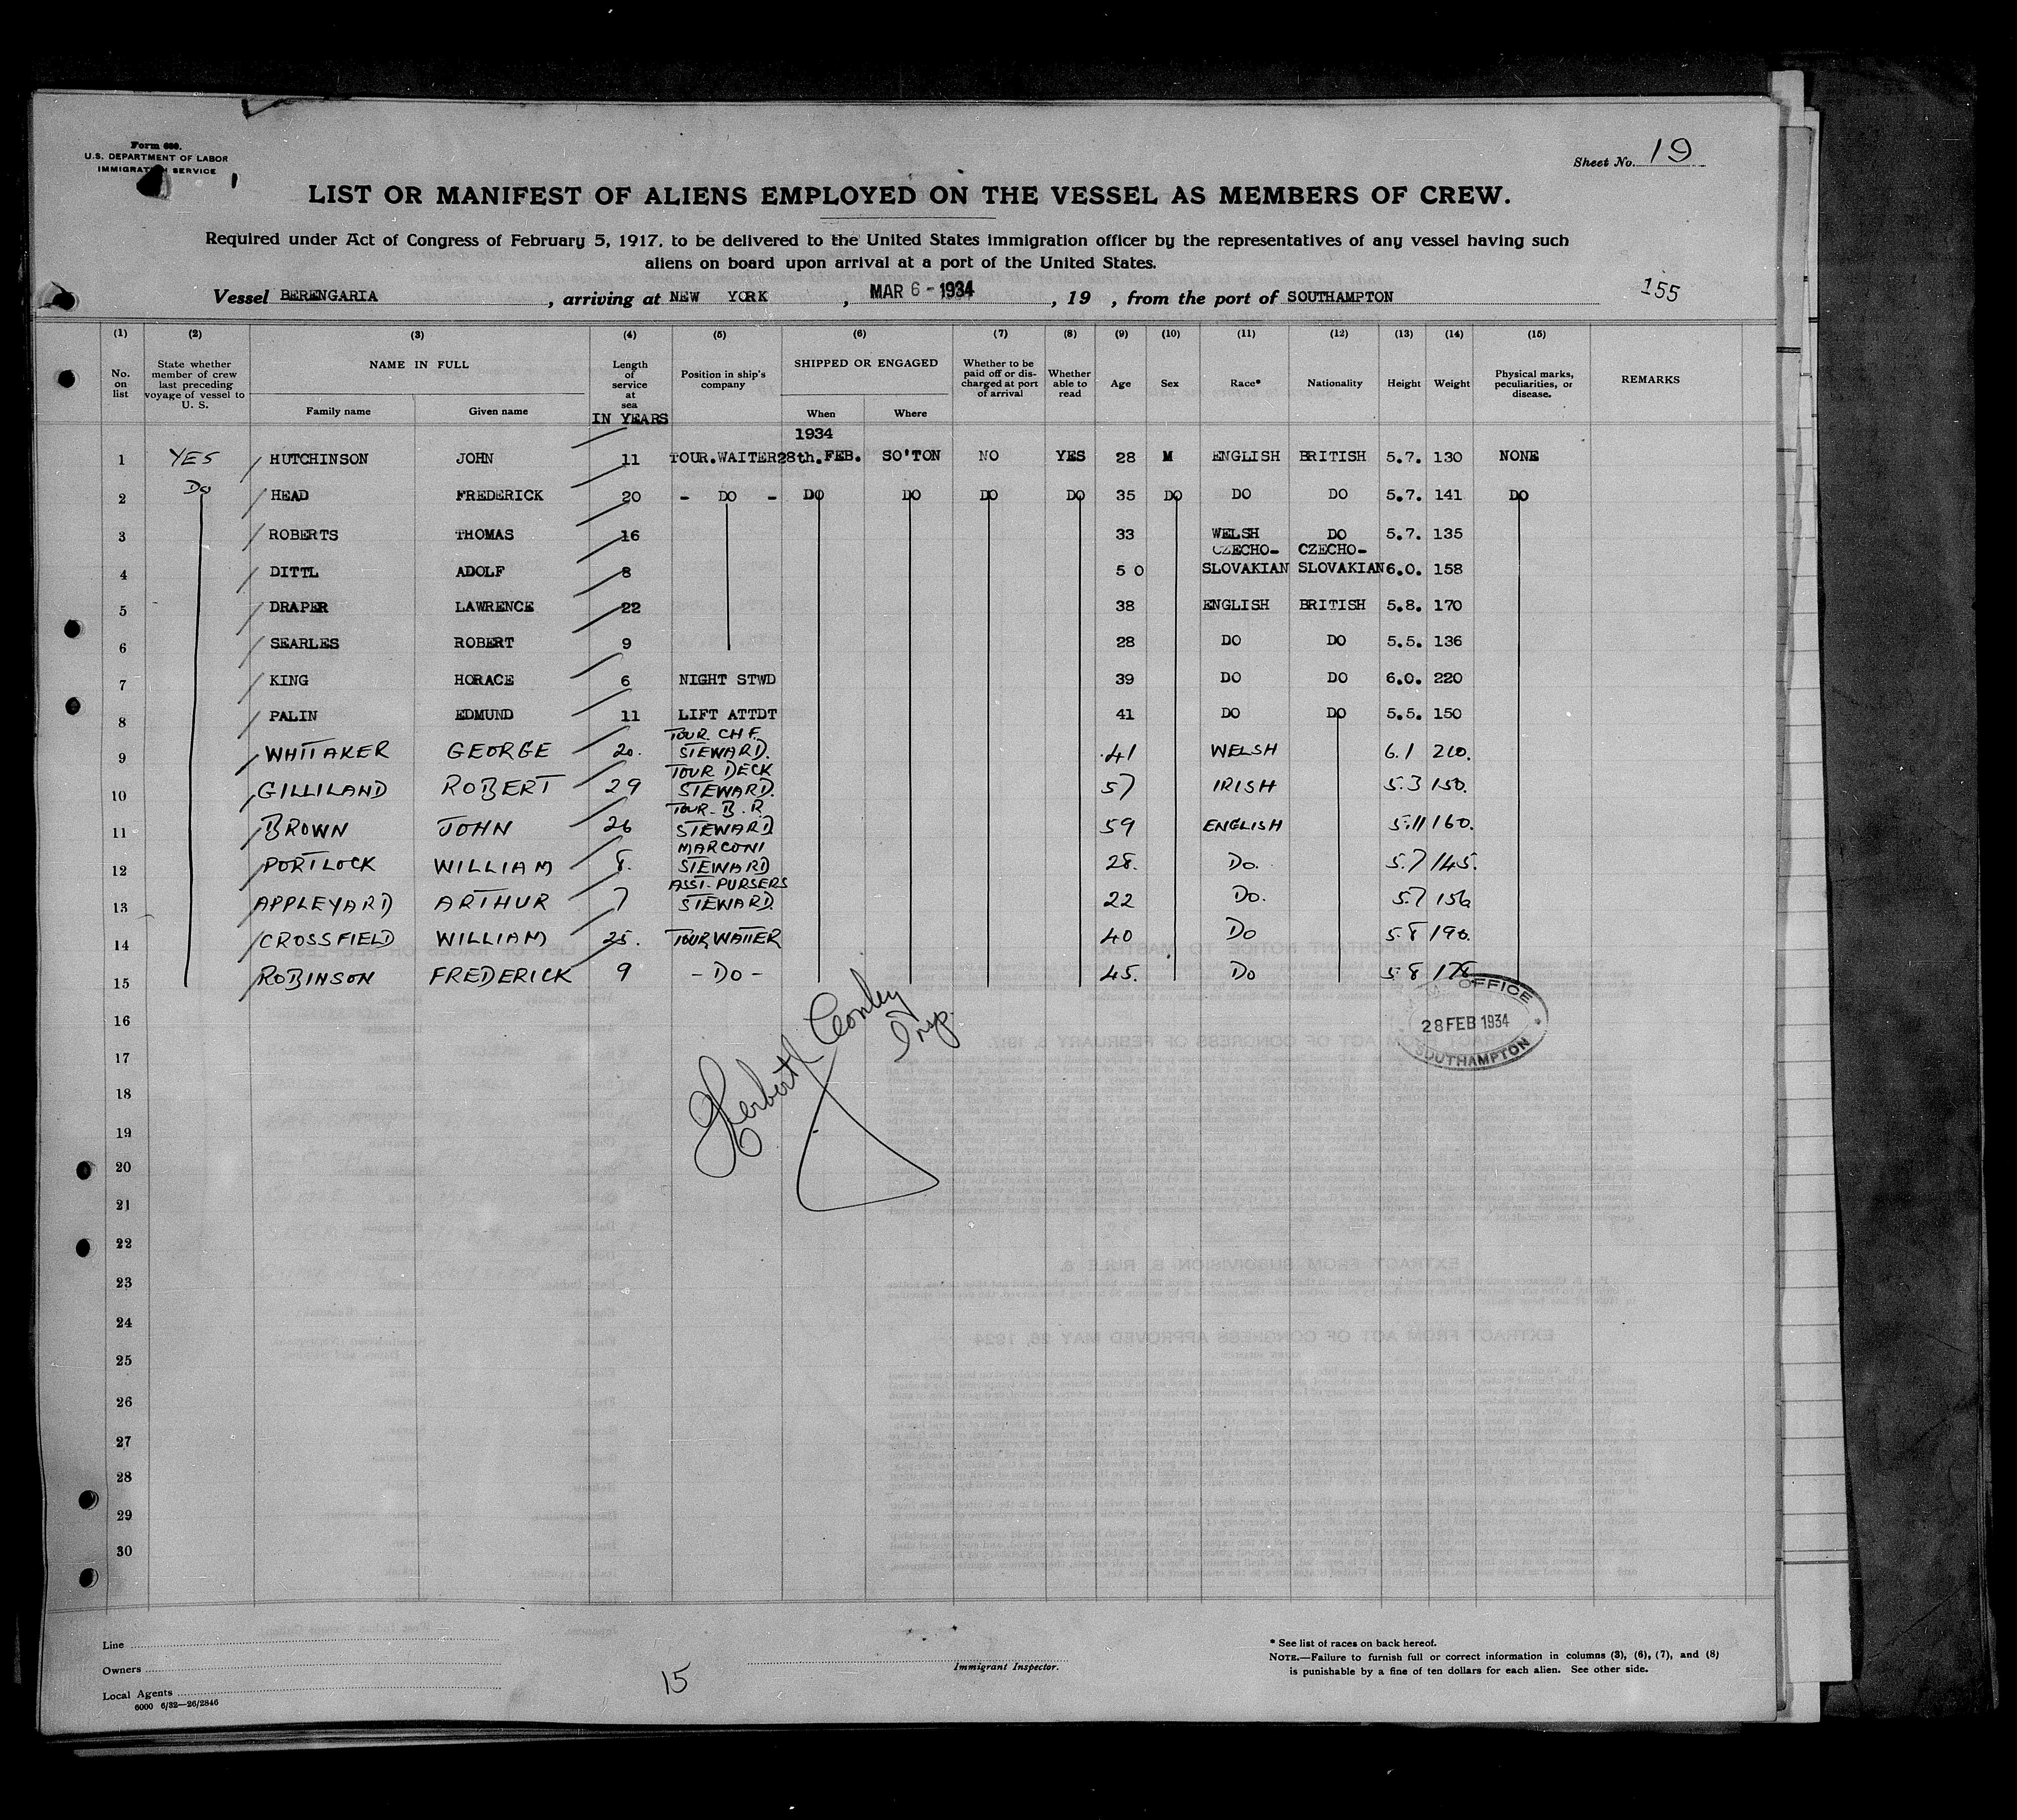 Form 689.
U.S. DEPARTMENT OF LABOR
IMMIGRATION SERVICE
Sheet No. 19
LIST OR MANIFEST OF ALIENS EMPLOYED ON THE VESSEL AS MEMBERS OF CREW.
Required under Act of Congress of February 5, 1917, to be delivered to the United States immigration officer by the representatives of any vessel having such
aliens on board upon arrival at a port of the United States.
Vessel BERENGARIA , arriving at NEW YORK , MAR 6 - 1934 , 19 , from the port of SOUTHAMPTON
155
(1) (2) (3) (4) (5) (6) (7) (8) (9) (10) (11) (12) (13) (14) (15)
No. on list
State whether member of crew last preceding voyage of vessel to U. S.
NAME IN FULL
Family name Given name
Length of service at sea
IN YEARS
Position in ship's company
SHIPPED OR ENGAGED
When Where
Whether to be paid off or discharged at port of arrival
Whether able to read
Age Sex Race* Nationality Height Weight
Physical marks, peculiarities, or disease.
REMARKS
1934
1 YES HUTCHINSON JOHN 11 TOUR.WAITER 28th.FEB. SO'TON NO YES 28 M ENGLISH BRITISH 5.7. 130 NONE
2 Do HEAD FREDERICK 20 - DO - DO DO DO DO 35 DO DO DO 5.7. 141 DO
3 ROBERTS THOMAS 16 33 WELSH DO 5.7. 135
CZECHO- CZECHO-
4 DITTL ADOLF 8 5 0 SLOVAKIAN SLOVAKIAN 6.0. 158
5 DRAPER LAWRENCE 22 38 ENGLISH BRITISH 5.8. 170
6 SEARLES ROBERT 9 28 DO DO 5.5. 136
7 KING HORACE 6 NIGHT STWD 39 DO DO 6.0. 220
8 PALIN EDMUND 11 LIFT ATTDT 41 DO DO 5.5. 150
TOUR CHF.
9 WHITTAKER GEORGE 20. STEWARD. 41 WELSH 6.1 210.
TOUR DECK
10 GILLILAND ROBERT 29 STEWARD. 57 IRISH 5.3 150.
TOUR. B. R.
11 BROWN JOHN 26 STEWARD 59 ENGLISH 5.11 160.
MARCONI
12 PORTLOCK WILLIAM 8. STEWARD 28. Do. 5.7 145.
ASST. PURSERS
13 APPLEYARD ARTHUR 7 STEWARD. 22 Do. 5.7 156
14 CROSSFIELD WILLIAM 25. TOUR WAITER 40 Do 5.8 190.
15 ROBINSON FREDERICK 9 - DO - 45. Do 5.8 178
16
OFFICE
28 FEB 1934
SOUTHAMPTON
Herbert Conley
Insp.
17
18
19
20
21
22
23
24
25
26
27
28
29
30
Line
Owners
Local Agents
6000 6/32—26/2846
15
Immigrant Inspector.
* See list of races on back hereof.
NOTE.—Failure to furnish full or correct information in columns (3), (6), (7), and (8)
is punishable by a fine of ten dollars for each alien. See other side.